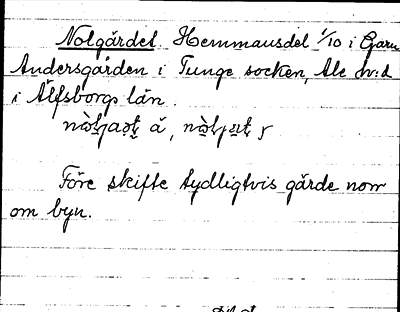 Nolgärdet. Hemmansdel 1/10 i Garn
Andersgården i Tunge socken, Ale hv:d
i Älfsborgs län.
å,
Före skifte tydligtvis gärde norr
om byn.